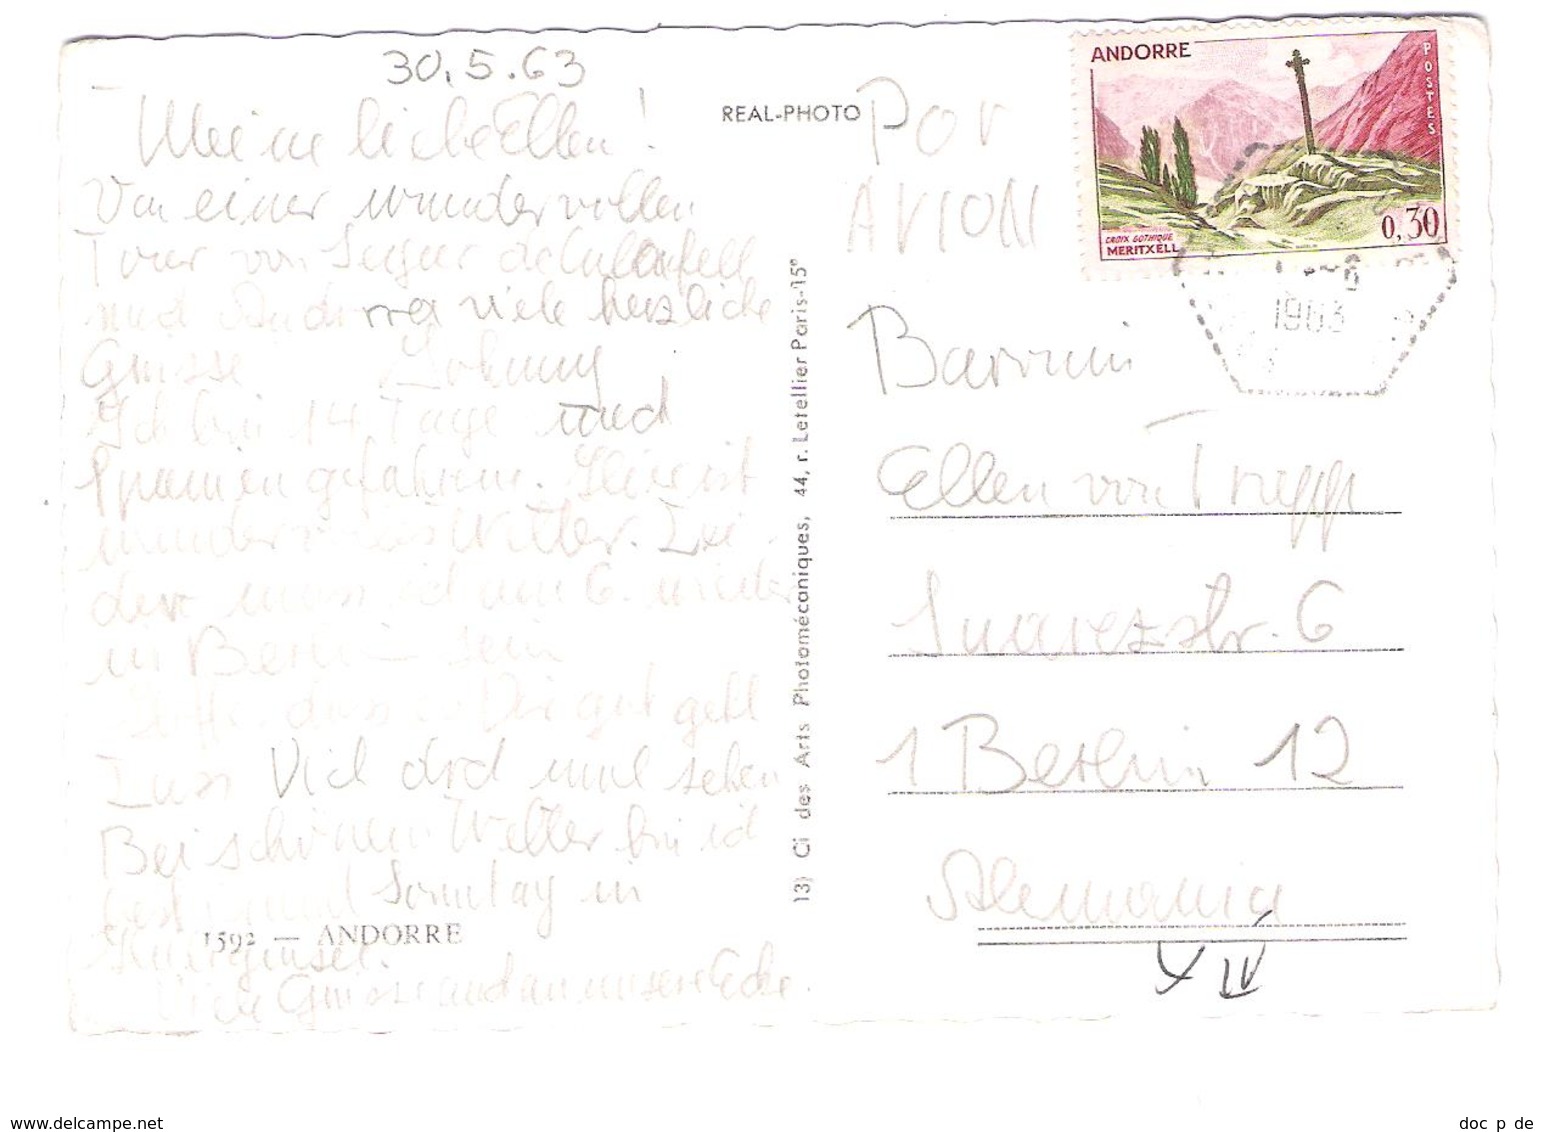 30.5.63
Meine liebe Ellen!
Von einer wundervollen
Tour von Seo de
und Andorra viele herzliche
Grüsse Johnny
Ich bin 14 Tage und
Spanien gefahren. Hier ist
wundervolles Wetter. Lei
der muss ich am 6. wieder
in Berlin sein
Hoffe, dass es Dir gut geht
Lass Dich dod mal sehen
Bei schönem Wetter bin ich
Sonntag in
1592 — ANDORRE
Viele Grüsse and an unsere Ecke.
REAL-PHOTO
13) Ci des Arts Photomécaniques, 44, r. Letellier Paris-15e
POR
AVION
ANDORRE
POSTES
CROIX GOTHIQUE
MERITXELL
0,30
1963
Ellen von Trapp
Suarezstr. 6
1 Berlin 12
Alemania
www.delcampe.net
doc_p_de